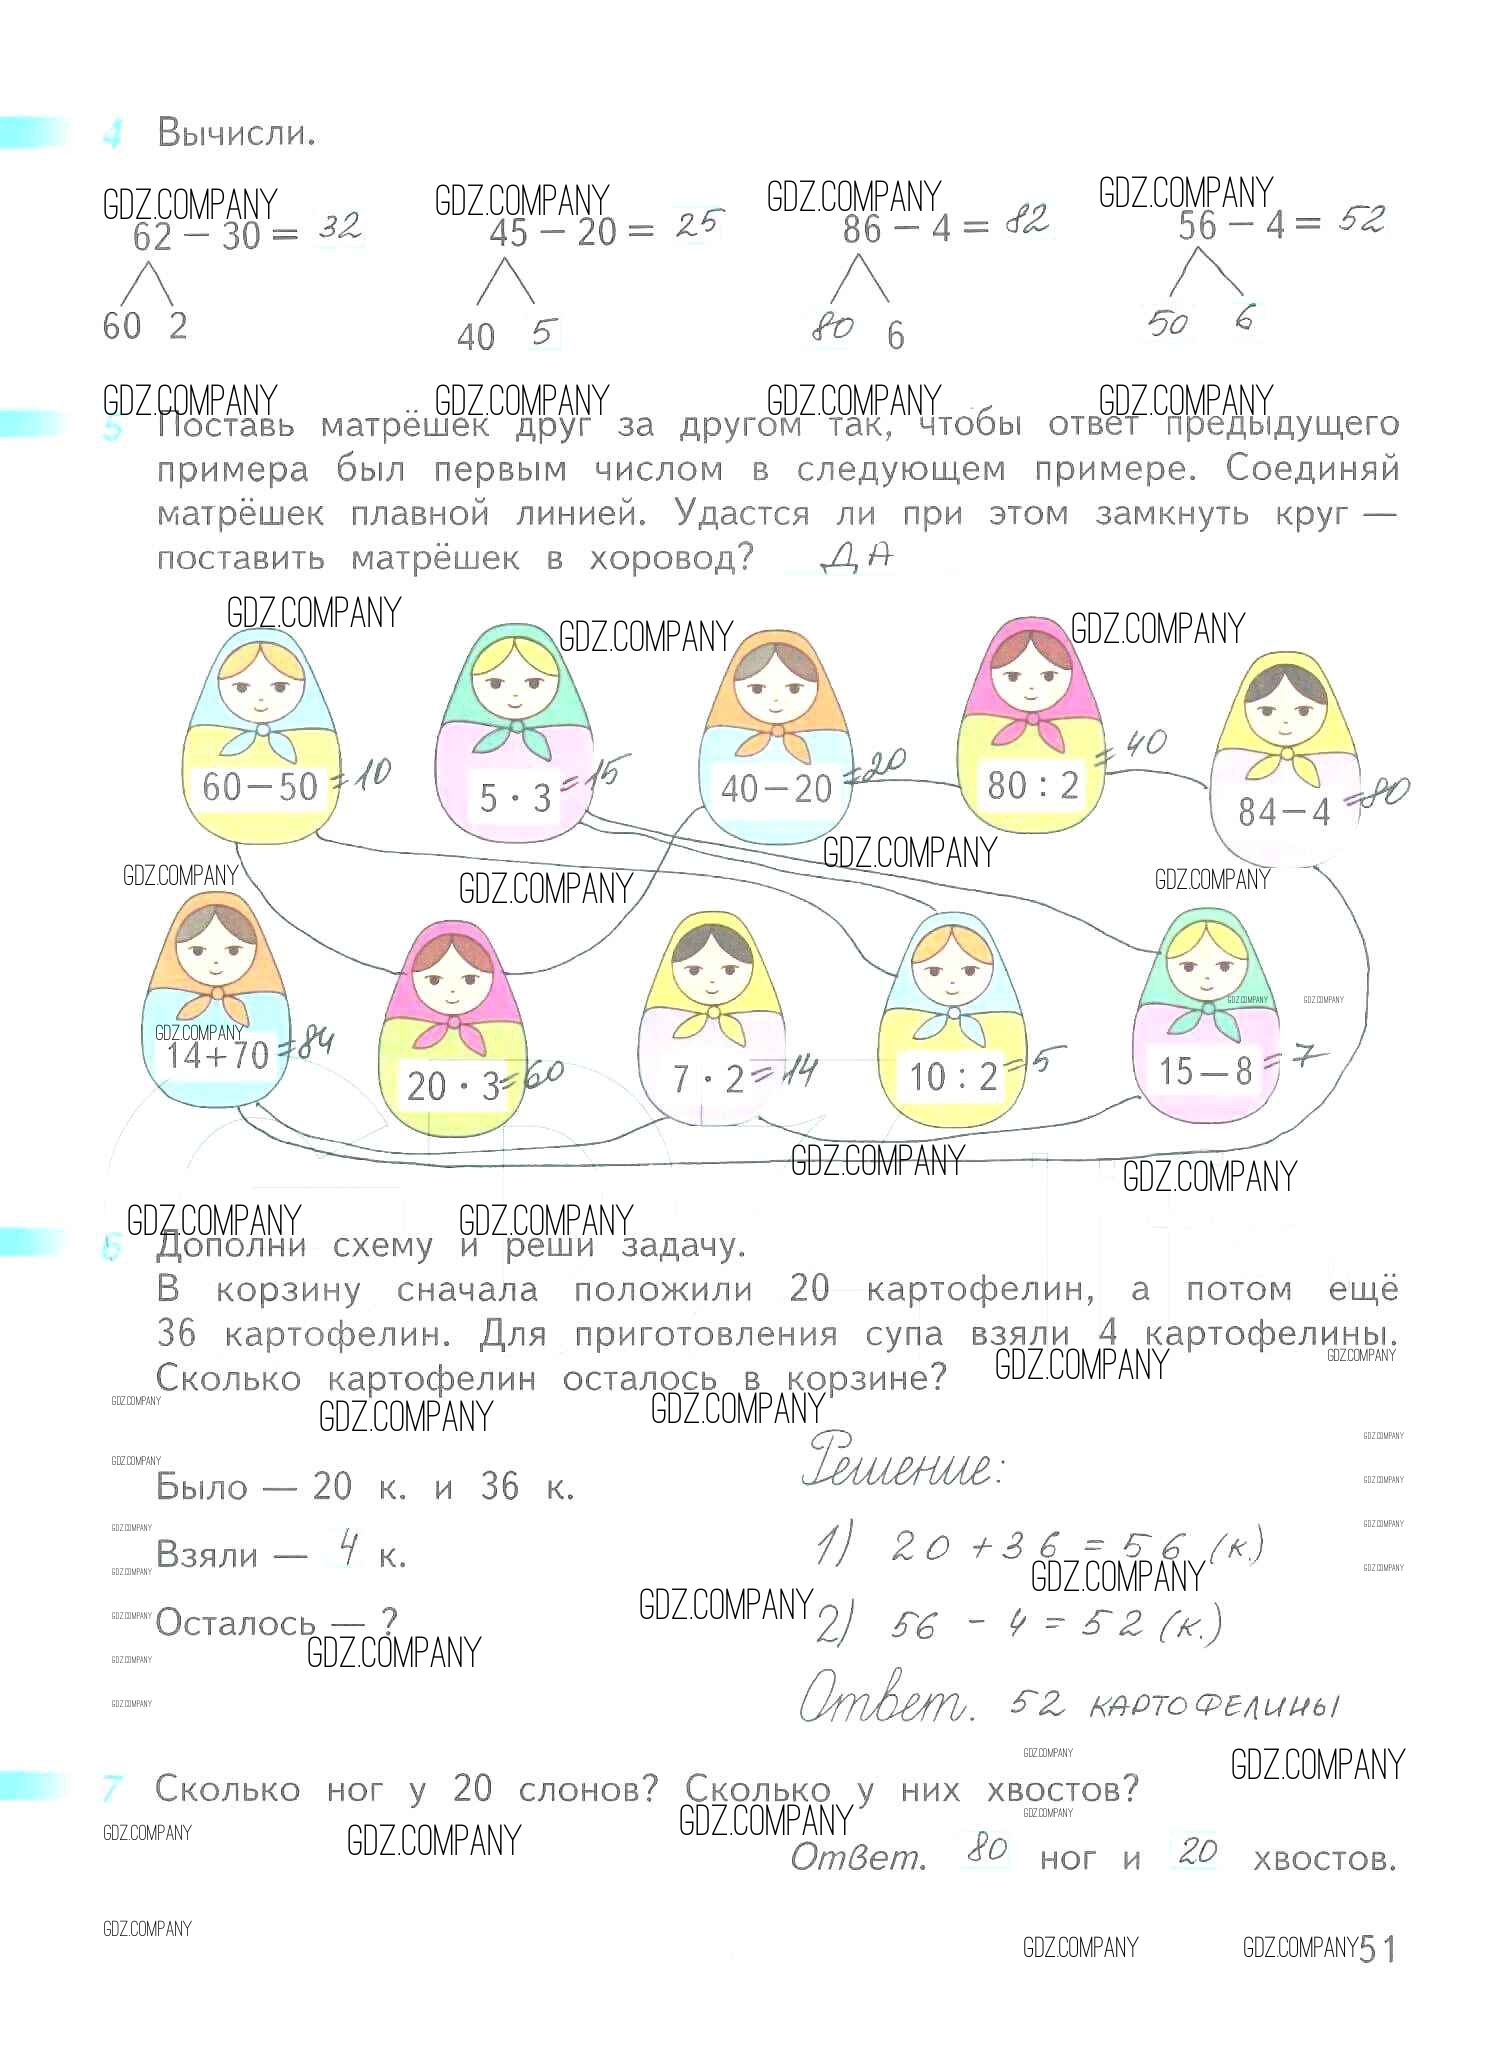 4 Вычисли.
GDZ.COMPANY GDZ.COMPANY GDZ.COMPANY GDZ.COMPANY
62 − 30 = 32 45 − 20 = 25 86 − 4 = 82 56 − 4 = 52
60 2 40 5 80 6 50 6
GDZ.COMPANY GDZ.COMPANY GDZ.COMPANY GDZ.COMPANY
5 Поставь матрёшек друг за другом так, чтобы ответ предыдущего
примера был первым числом в следующем примере. Соединяй
матрёшек плавной линией. Удастся ли при этом замкнуть круг —
поставить матрёшек в хоровод? ДА
GDZ.COMPANY GDZ.COMPANY GDZ.COMPANY
60−50 =10 5 · 3 =15 40−20 =20 80 : 2 =40 84−4 =80
GDZ.COMPANY GDZ.COMPANY GDZ.COMPANY GDZ.COMPANY
GDZ.COMPANY GDZ.COMPANY GDZ.COMPANY
14+70 =84 20 · 3 =60 7 · 2 =14 10 : 2 =5 15−8 =7
GDZ.COMPANY GDZ.COMPANY
GDZ.COMPANY GDZ.COMPANY
6 Дополни схему и реши задачу.
В корзину сначала положили 20 картофелин, а потом ещё
36 картофелин. Для приготовления супа взяли 4 картофелины.
GDZ.COMPANY GDZ.COMPANY
Сколько картофелин осталось в корзине?
GDZ.COMPANY GDZ.COMPANY GDZ.COMPANY
GDZ.COMPANY
GDZ.COMPANY
Решение:
GDZ.COMPANY
Было — 20 к. и 36 к.
GDZ.COMPANY GDZ.COMPANY
Взяли — 4 к.
1) 20 + 36 = 56 (к.)
GDZ.COMPANY GDZ.COMPANY GDZ.COMPANY
GDZ.COMPANY GDZ.COMPANY
Осталось — ?
2) 56 − 4 = 52 (к.)
GDZ.COMPANY GDZ.COMPANY
GDZ.COMPANY
Ответ. 52 картофелины
GDZ.COMPANY GDZ.COMPANY
7 Сколько ног у 20 слонов? Сколько у них хвостов?
GDZ.COMPANY GDZ.COMPANY GDZ.COMPANY GDZ.COMPANY
Ответ. 80 ног и 20 хвостов.
GDZ.COMPANY GDZ.COMPANY GDZ.COMPANY
51